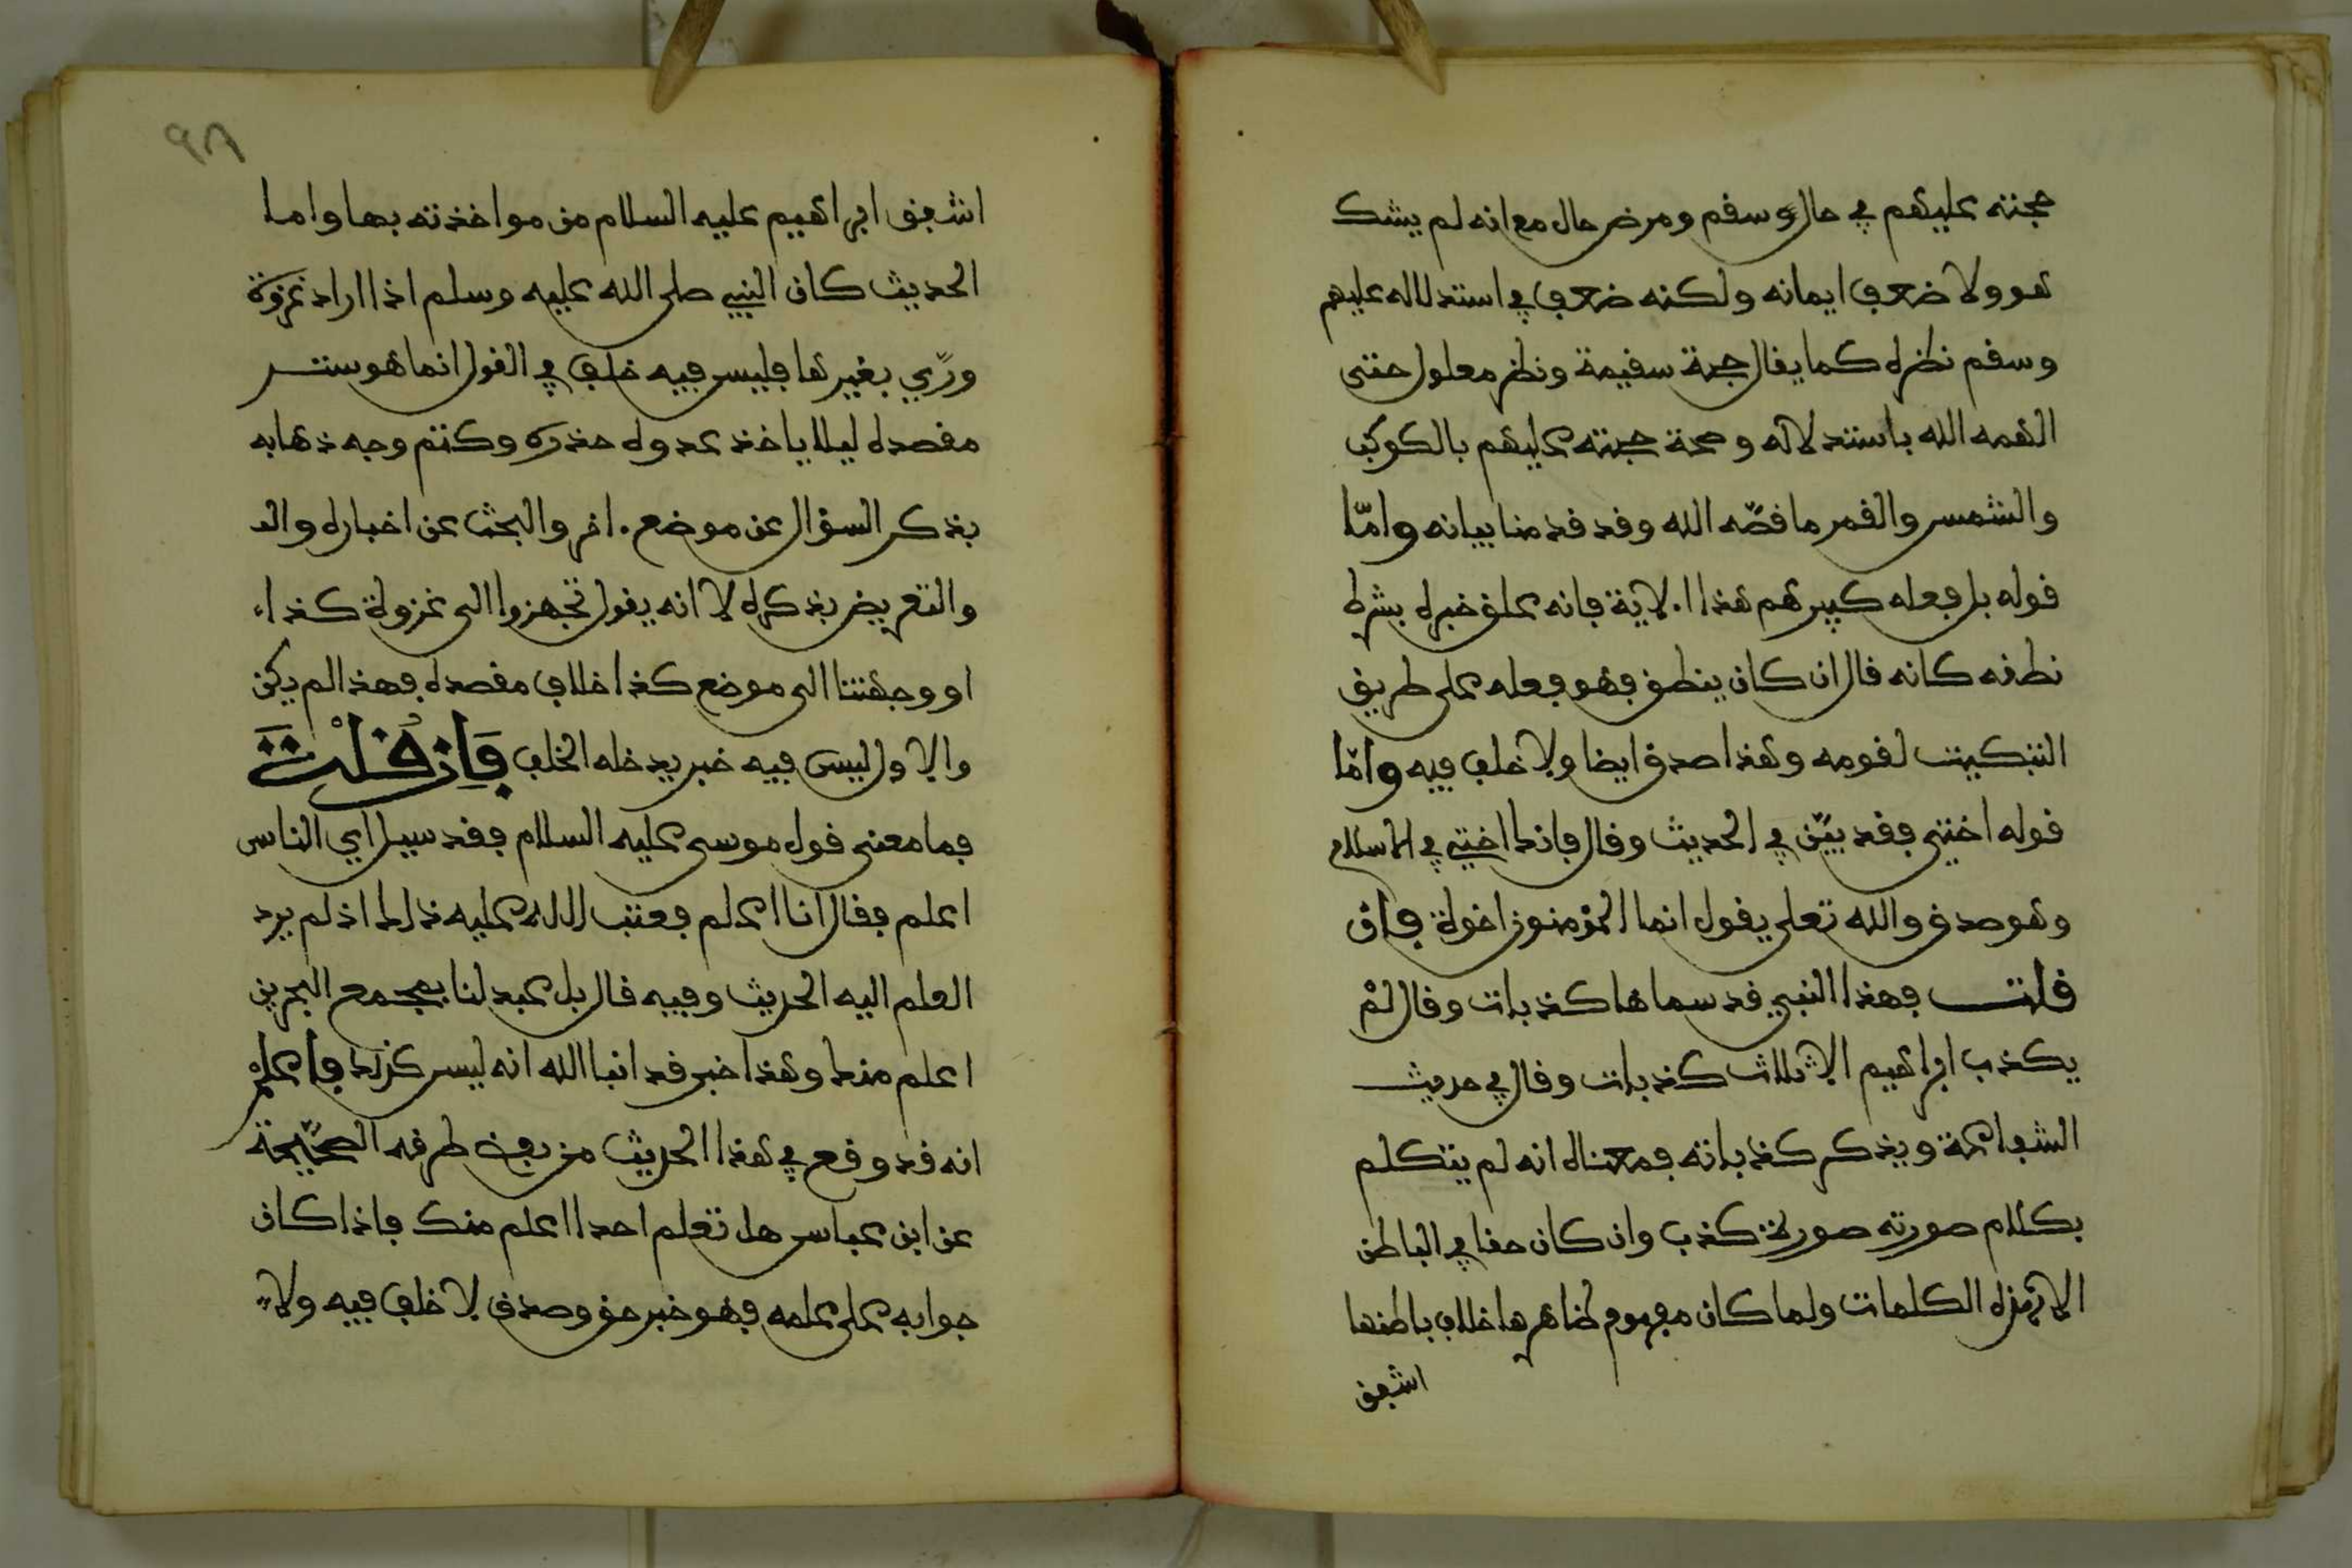 حجته عليهم في حال وسقم ومرض حال مع انه لم يشك
هو ولا ضعف ايمانه ولكنه ضعف في استدلاله عليهم
وسقم نظره كما يقال حجة سقيمة ونظر معلول حتى
الهمه الله باستدلاله وصحة حجته عليهم بالكوكب
والشمس والقمر ما قصّه الله وقد قدمنا بيانه وامّا
قوله بل فعله كبيرهم هذا الاية فانه علق خبره بشرط
نطقه كانه قال ان كان ينطق فهو فعله على طريق
التبكيت لقومه وهذا صدق ايضا ولا خلف فيه وامّا
قوله اختي فقد بيّن في الحديث وقال فانك اختي في الاسلام
وهو صدق والله تعلى يقول انما المؤمنون اخوة فان
قلت فهذا النبي قد سماها كذبات وقال لمْ
يكذب ابراهيم الا ثلاث كذبات وقال في حديث
الشفاعة ويذكر كذباته فمعناه انه لم يتكلم
بكلام صورته صورة كذب وان كان حقا في الباطن
الا هذه الكلمات ولما كان مفهوم ظاهرها خلاف باطنها
اشفق
٩٨
اشفق ابراهيم عليه السلام من مواخذته بها واما
الحديث كان النبي صلى الله عليه وسلم اذا اراد غزوة
ورّي بغيرها فليس فيه خلف في القول انما هو ستر
مقصده ليلا ياخذ عدوه حذره وكتم وجه ذهابه
بذكر السؤال عن موضع اخر والبحث عن اخباره والد
والتعريض بذكره لا انه يقول تجهزوا الى غزوة كذا
او وجهتنا الى موضع كذا خلاف مقصده فهذا لم يكن
والاول ليس فيه خبر يدخله الخلف فَاِن قُلْتَ
فما معنى قول موسى عليه السلام فقد سيل اي الناس
اعلم فقال انا اعلم فعتب الله عليه ذلك اذ لم يرد
العلم اليه الحديث وفيه قال بل عبد لنا بمجمع البحرين
اعلم منك وهذا خبر قد انبا الله انه ليس كذلك فاعلمْ
انه قد وقع في هذا الحديث من بعض طرقه الصحيحة
عن ابن عباس هل تعلم احدا اعلم منك فاذا كان
جوابه على علمه فهو خبر حق وصدق لا خلف فيه ولا